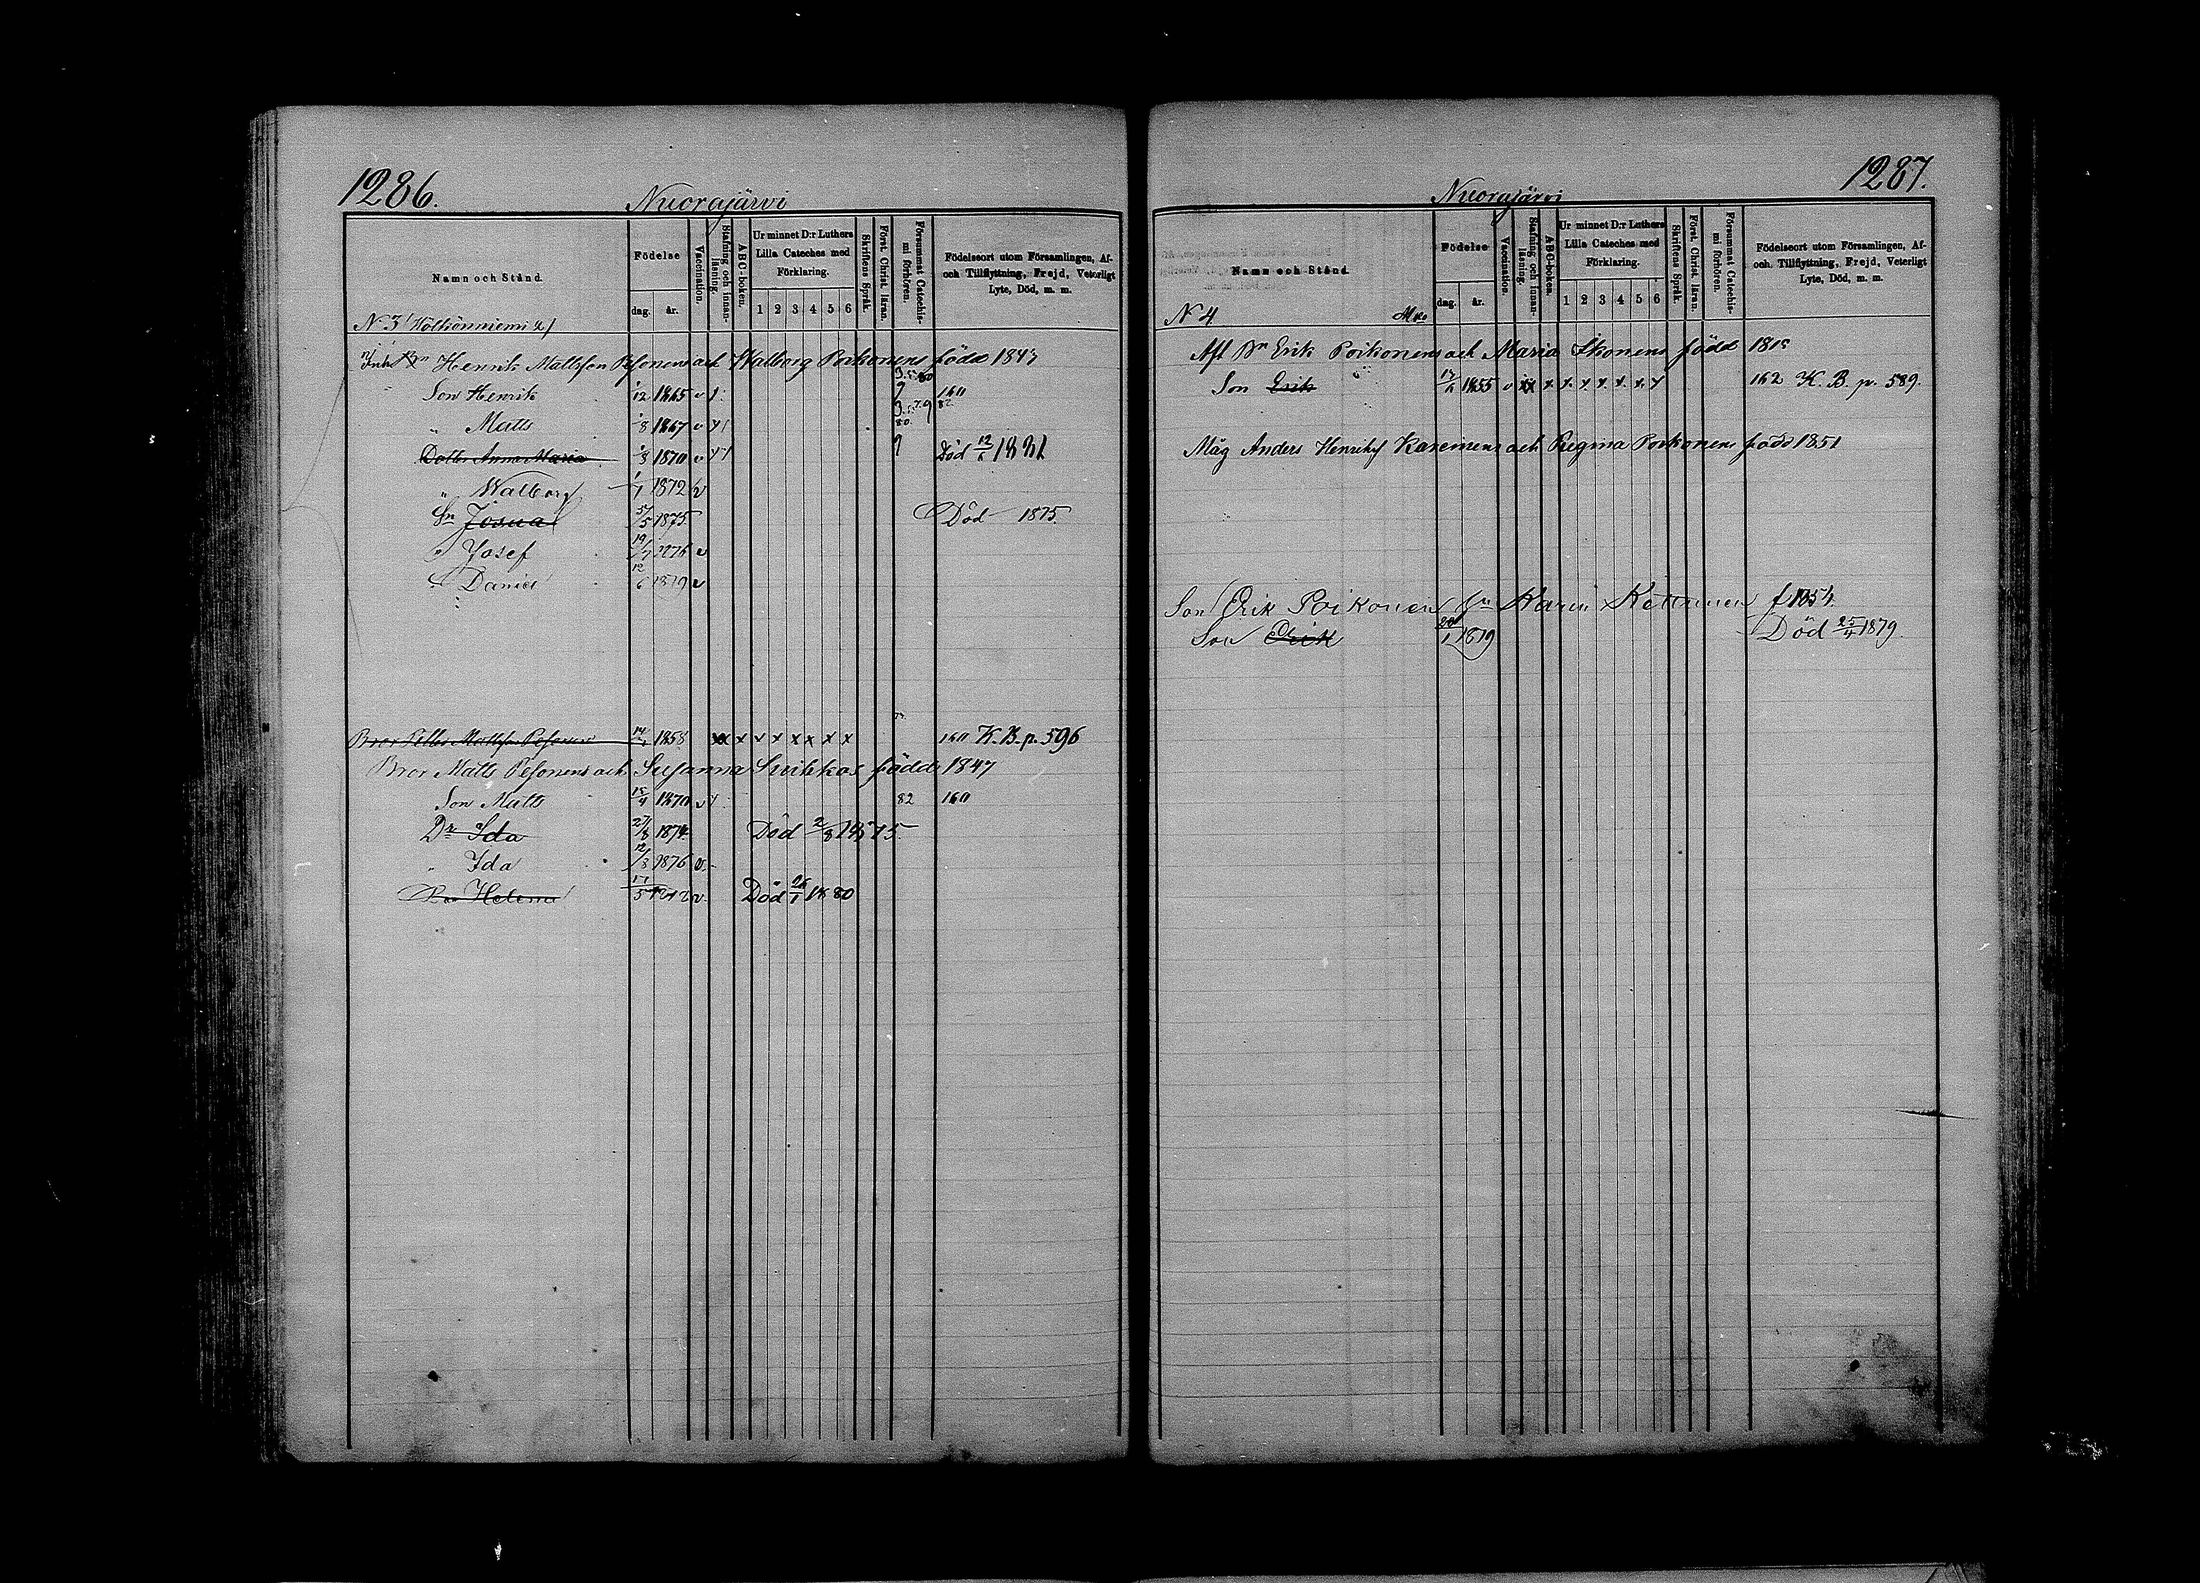 1286.
Nuorajärvi
Namn och Stånd.
Födelse
dag. år.
Vaccination.
Stafning och innanläsning.
ABC-boken.
Ur minnet D:r Luthers Lilla Cateches med Förklaring.
1 2 3 4 5 6
Skriftens Språk.
Först. Christ. läran.
Försummat Catechismi förhören.
Födelseort utom Församlingen, Af- och Tillflyttning, Frejd, Veterligt Lyte, Död, m. m.
N 3
Henrik Mattsson Pesonens och Walborg Poikonens född 1847
Son Henrik 12 1865 v 160
" Matts 8 1867 v
Dotter Anna Maria 3 1870 v Död 12/6 1881
" Walborg 1 1872 v
Sn Josua 5/5 1875 Död 1875.
" Josef 19/7 1876 v
" Daniel 12/6 1879 v
Bror Petter Mattsson Pesonen 1858 x x x x x x x 160 K. B. p. 596
Bror Matts Pesonens och Susanna Suihkos född 1847
Son Matts 15/4 1870 v 82 160
Dr Ida 27/8 1874 Död 2/8 1875.
" Ida 12/3 1876 v.
Helena v Död 26/1 1880
1287.
Nuorajärvi
Namn och Stånd.
Födelse
dag. år.
Vaccination.
Stafning och innanläsning.
ABC-boken.
Ur minnet D:r Luthers Lilla Cateches med Förklaring.
1 2 3 4 5 6
Skriftens Språk.
Först. Christ. läran.
Försummat Catechismi förhören.
Födelseort utom Församlingen, Af- och Tillflyttning, Frejd, Veterligt Lyte, Död, m. m.
N 4
Aft Bn Erik Poikonens och Maria Ikonens född
Son Erik 1855 v x x x x x x x 162 K. B. p. 589.
Måg Anders Henriks Karvinens och Regina Poikonens född 1851
Son Erik Poikonen Karin f 1854.
Son Erik 1879 Död 25/4 1879.